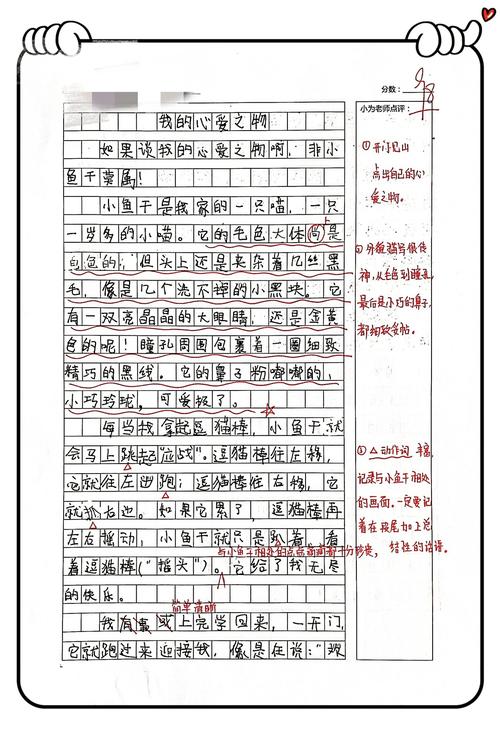 分数：98
小为老师点评：
我的心爱之物
如果说我的心爱之物啊，非小
鱼干莫属！
小鱼干是我家的一只喵，一只
一岁多的小喵。它的毛色大体尚是
白色的；但头上还是夹杂着几丝黑
毛，像是几个洗不掉的小黑块。它
有一双亮晶晶的大眼睛，还是金黄
色的呢！瞳孔周围包裹着一圈细致
精巧的黑线。它的鼻子粉嘟嘟的，
小巧玲珑，可爱极了。
每当我拿起逗猫棒，小鱼干就
会马上跳起"应战"。逗猫棒往左移，
它就往左边跑；逗猫棒往右移，它
就抓右边。如果它累了，逗猫棒再
左右摇动，小鱼干就只是趴着，看
着逗猫棒("摇头")。它给了我无尽
的快乐。
我有事或上完学回来，一开门，
它就跑过来迎接我，像是在说："欢
上
与小鱼干相处的点点滴滴都十分珍贵，
简单清晰
①开门见山
点出自己的心
爱之物。
②外貌描写很传
神，从毛色到瞳孔，
最后是小巧的鼻子，
都细致妥帖。
③△动作词 丰富，
记录与小鱼干相处
的画面。一定要记
着在段尾加上总
结性的话语。